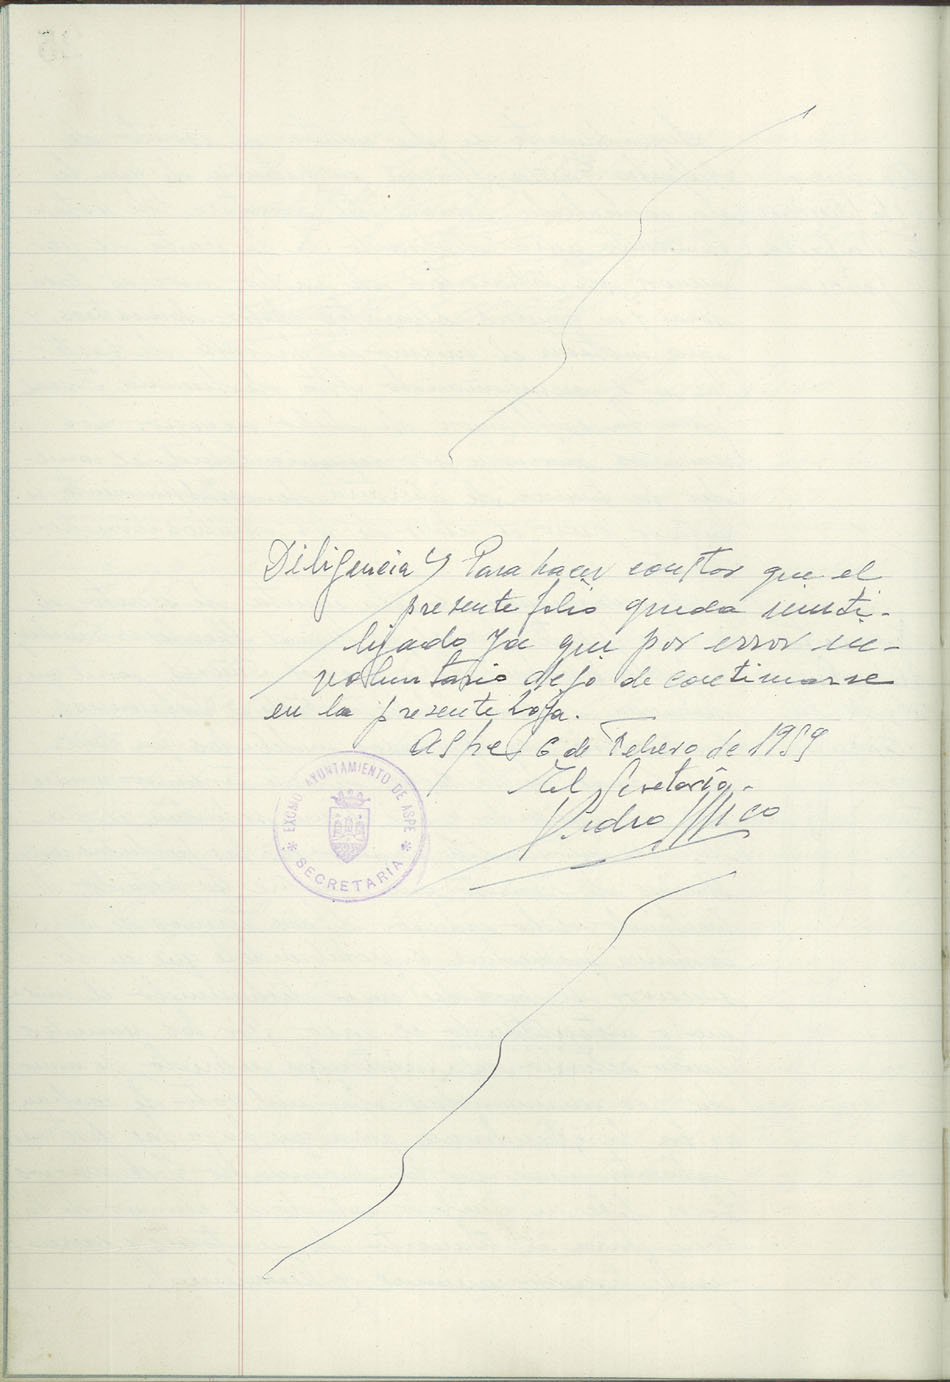 Diligencia Para hacer constar que el
presente folio queda inuti-
lizado ya que por error in-
voluntario dejó de continuarse
en la presente hoja.
Aspe 6 de Febrero de 1959
El Secretario.
Pedro Mico
EXCMO. AYUNTAMIENTO DE ASPE
* SECRETARIA *